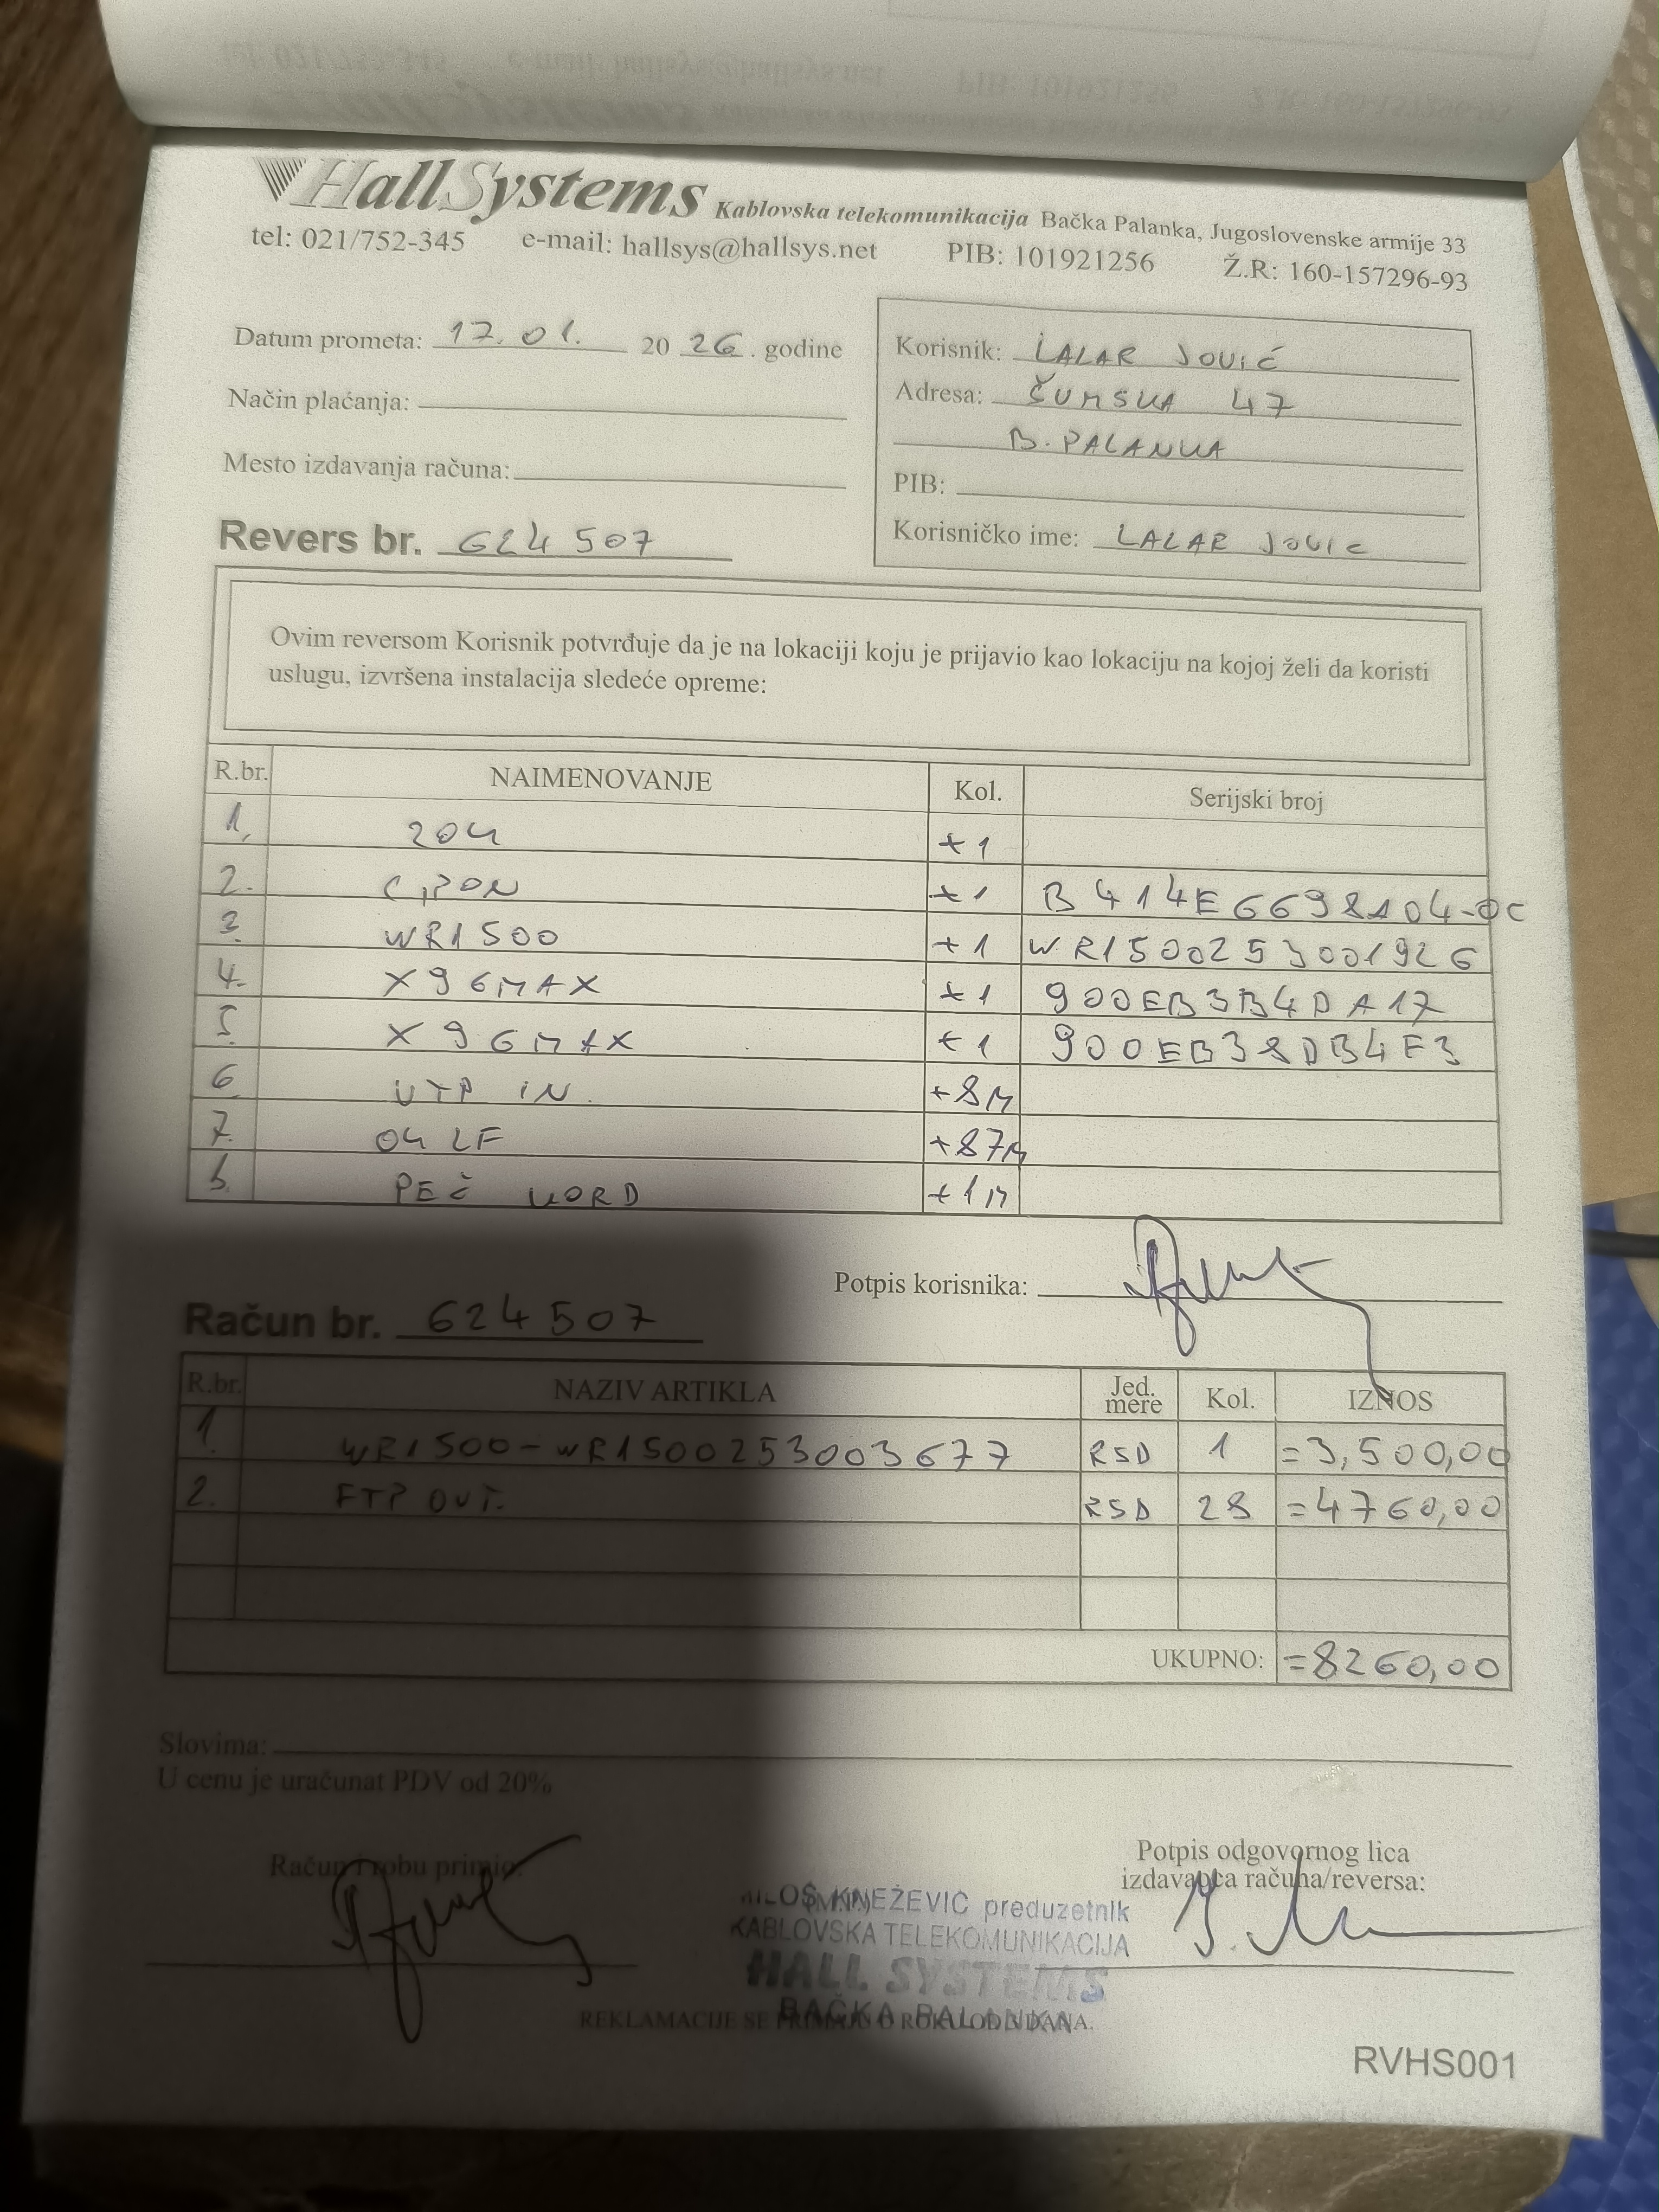 HallSystems Kablovska telekomunikacija Bačka Palanka, Jugoslovenske armije 33
tel: 021/752-345 e-mail: hallsys@hallsys.net PIB: 101921256 Ž.R: 160-157296-93
Datum prometa: 17.01. 20 26. godine
Način plaćanja:
Mesto izdavanja računa:
Revers br. 624507
Korisnik: LALAR JOVIĆ
Adresa: ŠUMSKA 47
B. PALANKA
PIB:
Korisničko ime: LALAR JOVIC
Ovim reversom Korisnik potvrđuje da je na lokaciji koju je prijavio kao lokaciju na kojoj želi da koristi
uslugu, izvršena instalacija sledeće opreme:
R.br. NAIMENOVANJE Kol. Serijski broj
1. +1
2. +1 B414E6698A04-0C
3. WR1500 +1 WR1500253001926
4. X96MAX +1 900EB3B4DA17
5. X96MAX +1 900EB38DB4F3
6. UTP IN. +8M
7. +87M
PEČ KORD +1M
Potpis korisnika:
Račun br. 624507
R.br. NAZIV ARTIKLA Jed. mere Kol. IZNOS
1. WR1500-WR1500253003677 RSD 1 =3,500,00
2. FTP OUT. RSD 28 =4760,00
UKUPNO: =8260,00
Slovima:
U cenu je uračunat PDV od 20%
Račun i robu primio:
Potpis odgovornog lica
izdavaoca računa/reversa:
MILOŠ KNEŽEVIĆ preduzetnik
KABLOVSKA TELEKOMUNIKACIJA
HALL SYSTEMS
BAČKA PALANKA
REKLAMACIJE SE PRIMAJU U ROKU OD DANA.
RVHS001